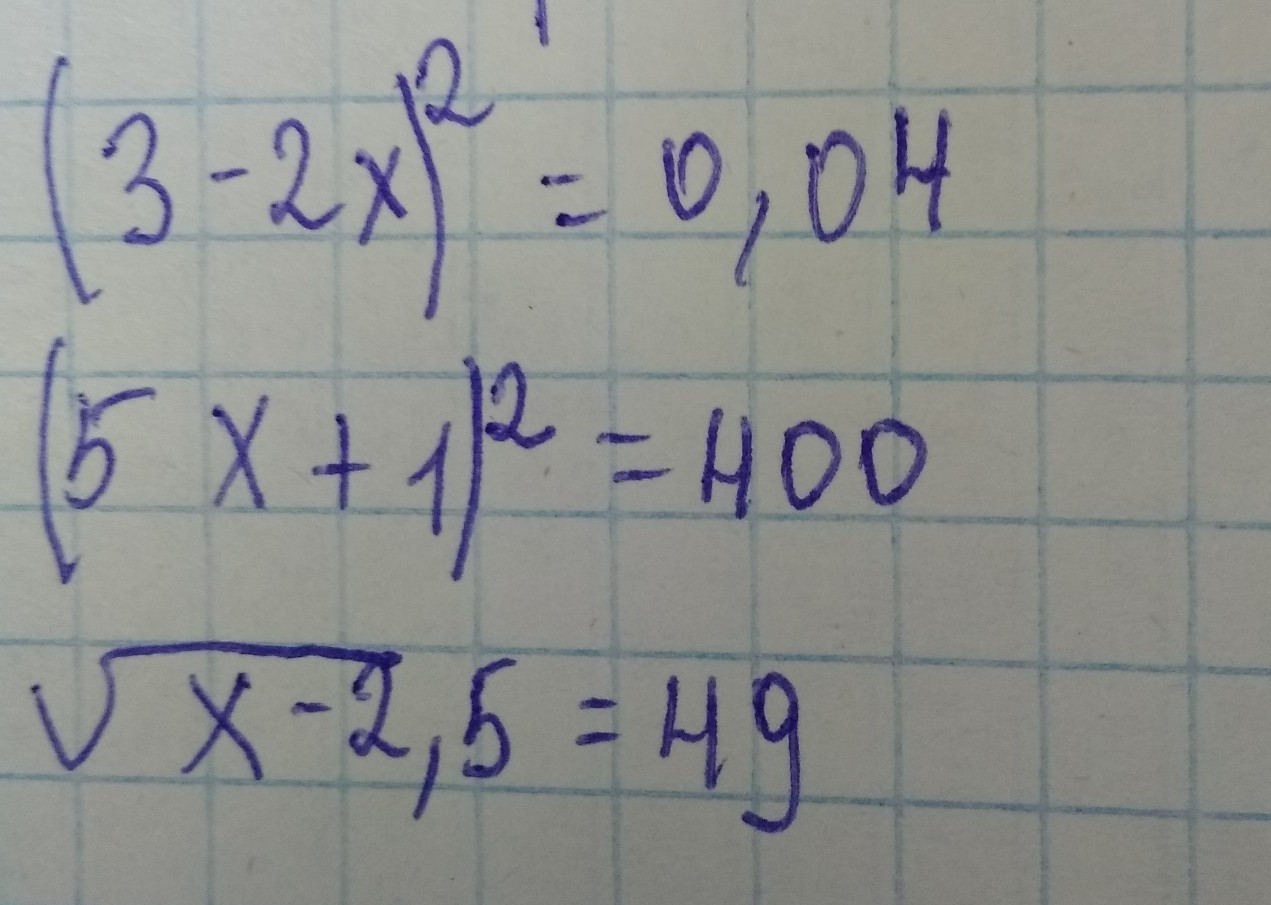 (3-2x)² = 0,04
(5x+1)² = 400
√x-2,5 = 49